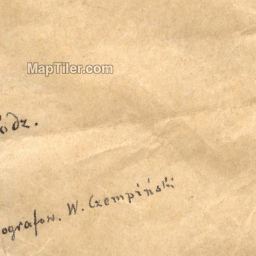 MapTiler.com
ódz.
ografow. W. Czempiński